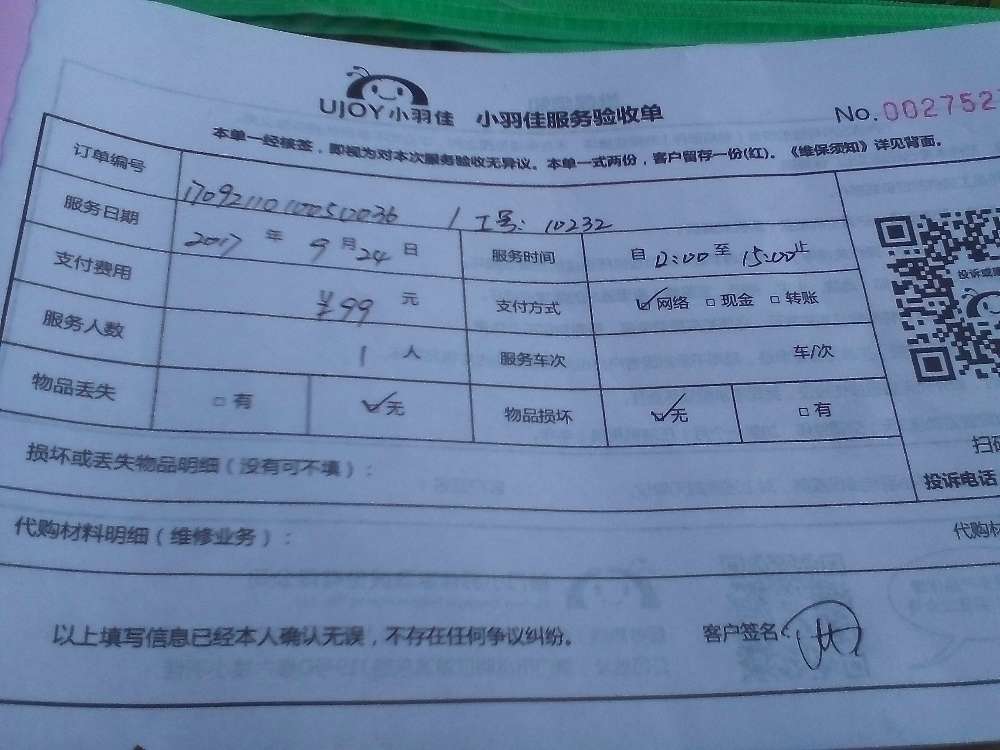 UJOY小羽佳 小羽佳服务验收单 No.002752
本单一经核签，即视为对本次服务验收无异议。本单一式两份，客户留存一份(红)。《维保须知》详见背面。
订单编号 1709211010050036 / 工号: 10232
服务日期 2017 年 9 月 24 日 服务时间 自 12:00 至 15:00 止
支付费用 ¥99 元 支付方式 ☑网络 □现金 □转账
服务人数 1 人 服务车次 车/次
物品丢失 □有 ☑无 物品损坏 ☑无 □有
投诉或
损坏或丢失物品明细（没有可不填）：
扫
投诉电话
代购材料明细（维修业务）：
代购
以上填写信息已经本人确认无误，不存在任何争议纠纷。 客户签名: